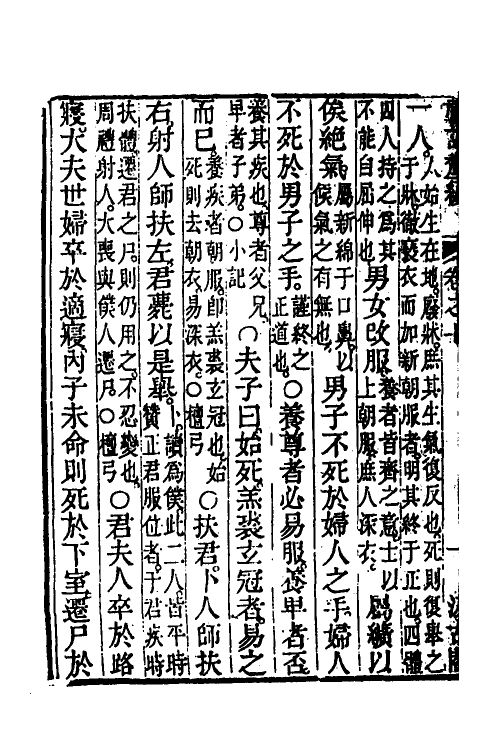 卷之十
一人。人始生在地。廢牀庶其生氣復反也。死則復舉之于牀。徹褻衣而加新朝服者。明其終于正也。四體
四人持之為其不能自屈伸也男女改服養者皆齊之意士以上朝服。庶人深衣。屬纊以
俟絕氣屬新綿于口鼻以候氣之有無也男子不死於婦人之手婦人
不死於男子之手謹終之正道也。○養尊者必易服。養卑者否
養其疾也。尊者父兄。卑者子弟。○小記○夫子曰。始死羔裘玄冠者。易之
而已養疾者朝服。即羔裘玄冠也。始死則去朝衣。易深衣。○檀弓○扶君。卜人師扶
右。射人師扶左。君薨以是舉。卜。讀為僕。此二人。皆平時贊正君服位者。于君疾時
扶體。遷君之尸。則仍用之。不忍變也。周禮射人。大喪與僕人遷尸。○檀弓○君夫人卒於路
寢。大夫世婦卒於適寢。內子未命則死於下室。遷尸於